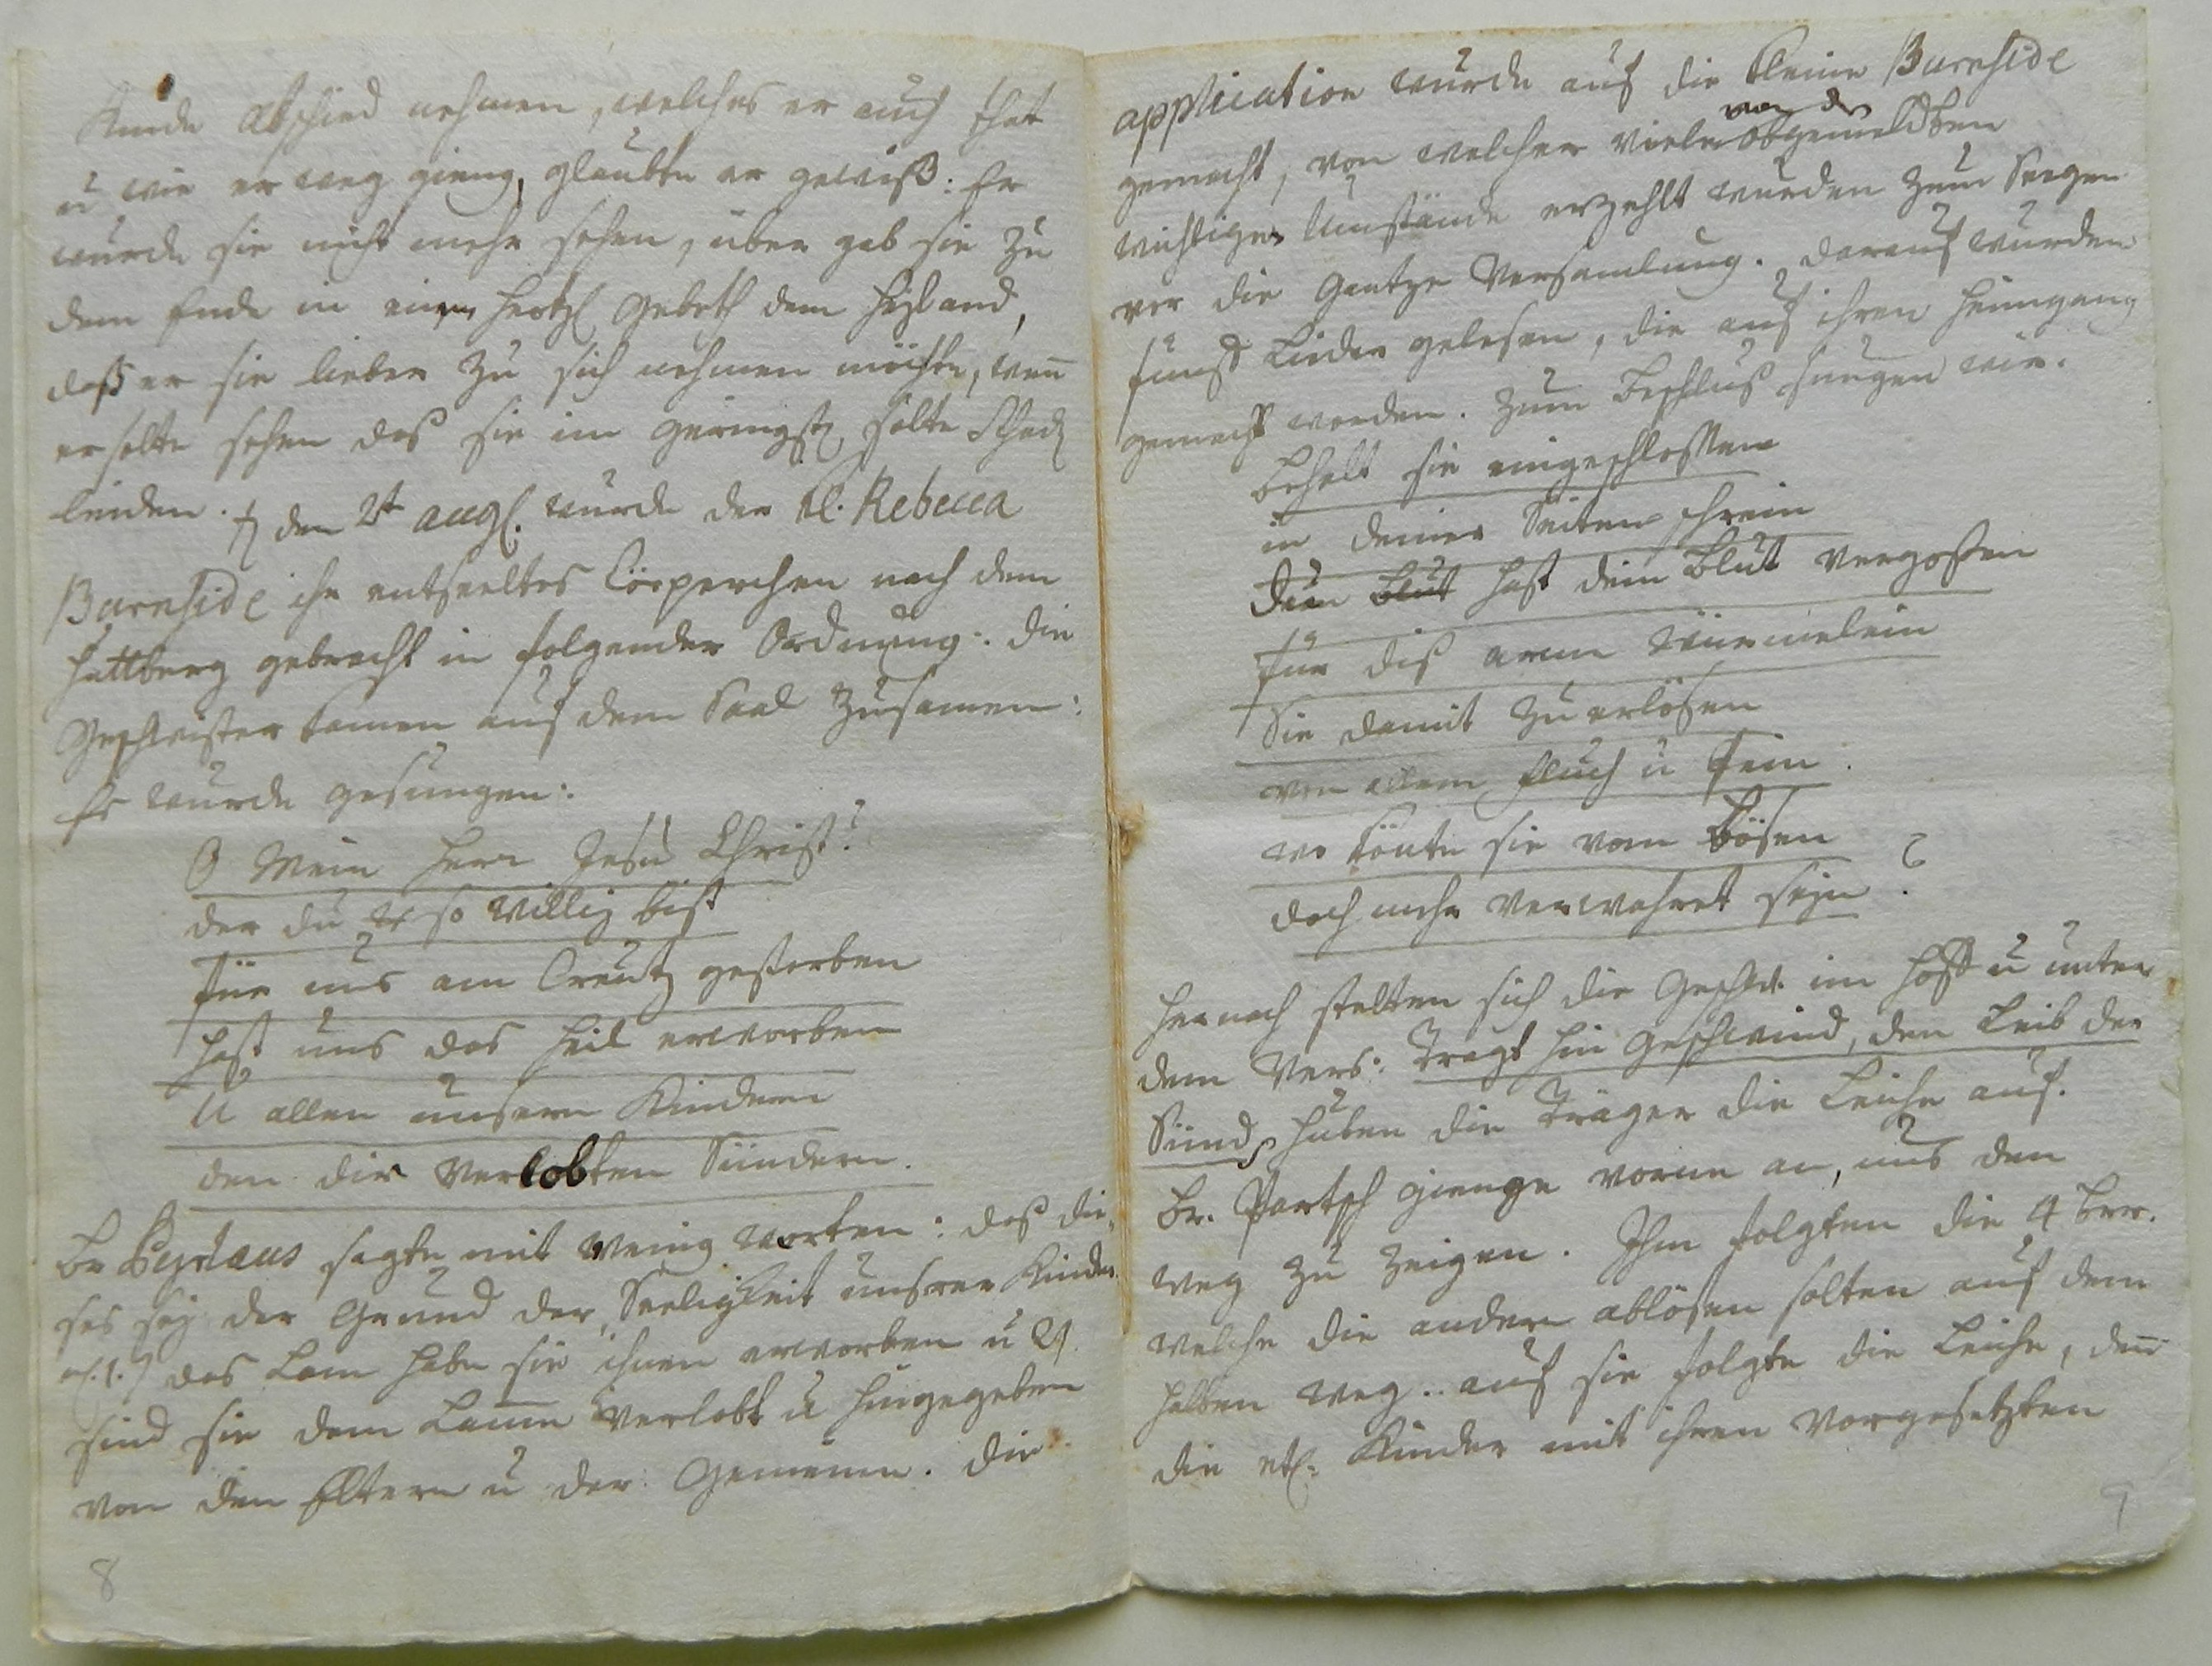 Kinde Abschied nehmen, welches er auch that
u wie er weg gieng, glaubte er gewiß: Er
wurde sie nicht mehr sehen, über gab sie zu
dem Ende in einem hertzl Gebeth dem Heyland,
daß er sie lieber zu sich nehmen möchte, wenn
er solte sehen daß sie im geringst solte Schad
leiden. den 2t aug. wurde der kl. Rebecca
Burnside ihr entseeltes Cörperchen nach dem
Huttberg gebracht in folgender Ordnung: die
Geschwister kamen auf dem Saal zusamen:
Es wurde gesungen:
O Mein Herr Jesu Christ!
der du so willig bist
für uns am Creutz gestorben
hast uns das Heil erworben
U allen unsern Kindern
den dir Verlobten Sündern.
Br Pezolaus sagte mit wenig worten: daß die,
ses sey der Grund der Seeligkeit unsrer Kinder
1.) das Lam habe sie ihnen erworben u 2)
sind sie dem Lamme verlobt u hingegeben
von den Eltern u der Gemeine. die
8
application wurde auf die kleine Burnside
gemacht, von welcher viele von den obgemeldten
wichtigen Umstände erzehlt wurden zum Seegen
vor die Gantze Versamlung. darauf wurden
fünff Lieder gelesen, die auf ihren Heimgang
gemacht worden. Zum Beschluß sungen wir.
Behalt sie eingeschlossen
in deiner Seiten schrein
Dein Blut hast dein Blut vergossen
für diß arme Würmelein
Sie damit zu erlösen
von allem Fluch u Pein.
wo könte sie vom Bösen
doch mehr verwahret seyn?
Hernach stelten sich die Geschw. im Hoff u unter
dem Vers: Tragt hin geschwind, den Leib der
Sünd, huben die Träger die Leiche auf.
Br. Partsch gienge vorne an, uns den
weg zu zeigen. Ihm folgten die 4 Brr.
welche die andern ablösen solten auf dem
halben weg. auf sie folgte die Leiche, denn
die etl. Kinder mit ihren Vorgesetzten
9